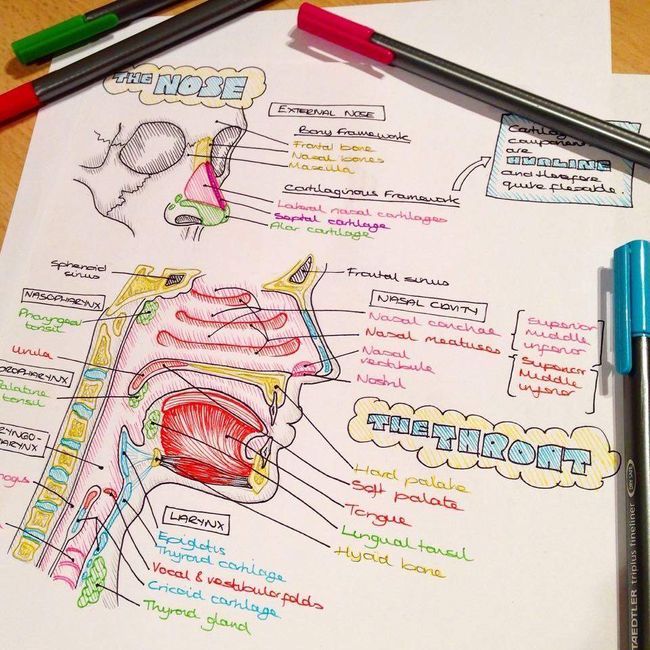 THE NOSE
EXTERNAL NOSE
Bony Framework
Frontal bone
Nasal bones
Maxilla
Cartilaginous Framework
Lateral nasal cartilages
Septal cartilage
Alar cartilage
Cartilage
components
are
HYALINE
and therefore
quite flexible.
Sphenoid
sinus
Frontal sinus
NASOPHARYNX
Pharyngeal
tonsil
Uvula
ROPHARYNX
Palatine
tonsil
RYNGO-
ARYNX
NASAL CAVITY
Nasal conchae
Superior
Middle
inferior
Nasal meatuses
Superior
Middle
inferior
Nasal
vestibule
Nostril
THE THROAT
Hard palate
Soft palate
Tongue
Lingual tonsil
Hyoid bone
LARYNX
Epiglotis
Thyroid cartilage
Vocal & vestibular folds
Cricoid cartilage
Thyroid gland
STAEDTLER triplus fineliner